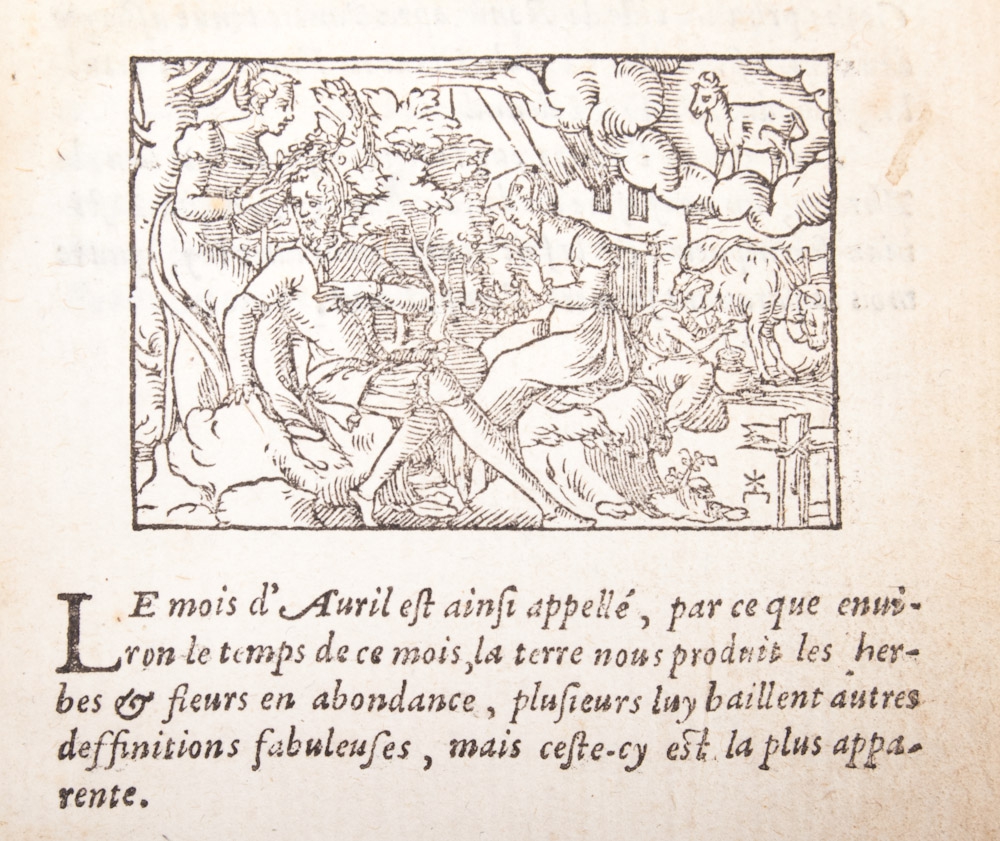 LE mois d'Auril est ainſi appellé, par ce que enui-
ron le temps de ce mois, la terre nous produit les her-
bes & fleurs en abondance, pluſieurs luy baillent autres
deffinitions fabuleuſes, mais ceſte-cy eſt la plus appa-
rente.